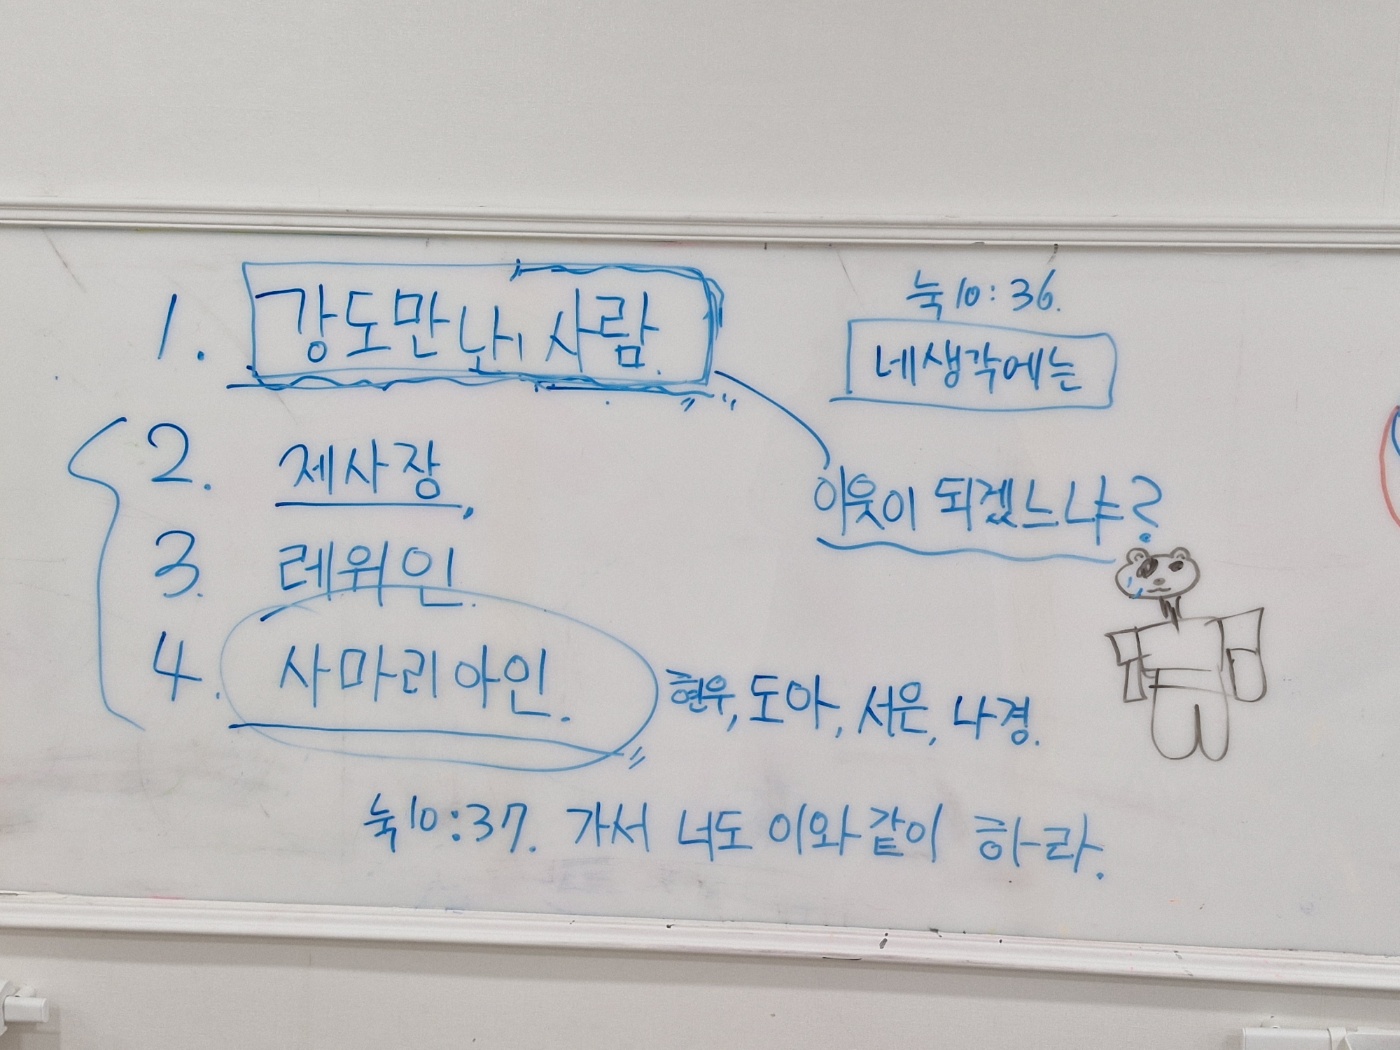 1. 강도만난 사람.
눅10:36.
네생각에는
2. 제사장,
이웃이 되겠느냐?
3. 레위인.
4. 사마리아인.
현우, 도아, 서은, 나경.
눅10:37. 가서 너도 이와같이 하라.